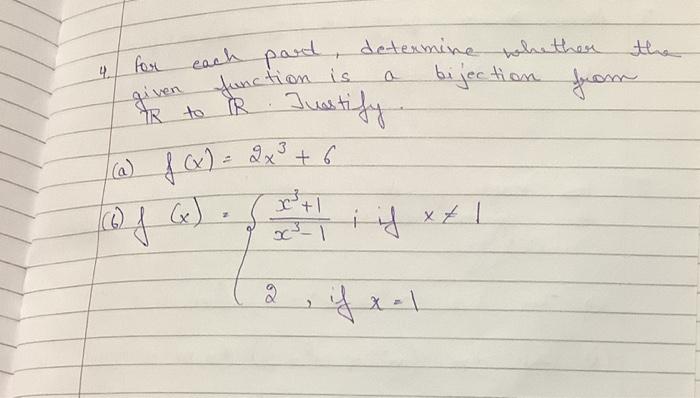 4. For each part, determine whether the
given function is a bijection from
ℝ to ℝ. Justify.
(a) f(x) = 2x³ + 6
(b) f(x) = { x³+1 / x³-1 ; if x ≠ 1
2, if x = 1